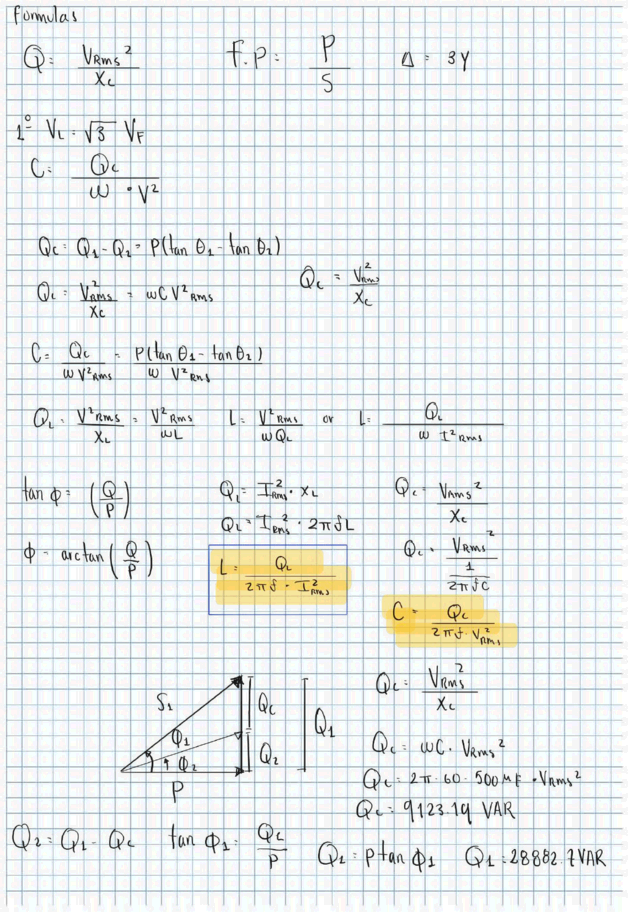 Formulas
Q = VRms² / Xc    F.P = P / S    Δ = 3Y
1° VL = √3 VF
C = Qc / ω · V²
Qc = Q1 - Q2 = P(tan θ1 - tan θ2)
Qc = V²Rms / Xc = ωC V²Rms    Qc = V²Rms / Xc
C = Qc / ω V²Rms = P(tan θ1 - tan θ2) / ω V²Rms
QL = V²Rms / XL = V²Rms / ωL    L = V²Rms / ωQL    or    L = QL / ω I²Rms
tan ϕ = (Q / P)    QL = I²Rms · XL    Qc = VRms² / Xc
QL = IRms² · 2πfL
ϕ = arctan (Q / P)    Qc = VRms² / (1 / 2πfC)
L = QL / 2πf · I²Rms
C = Qc / 2πf · V²Rms
S1 ϕ1 ϕ2 P Qc Q2 Q1
Qc = VRms² / Xc
Qc = ωC · VRms²
Qc = 2π · 60 · 500μF · VRms²
Qc = 9123.19 VAR
Q2 = Q1 - Qc    tan ϕ1 = QL / P    Q1 = P tan ϕ1    Q1 = 28882.7 VAR